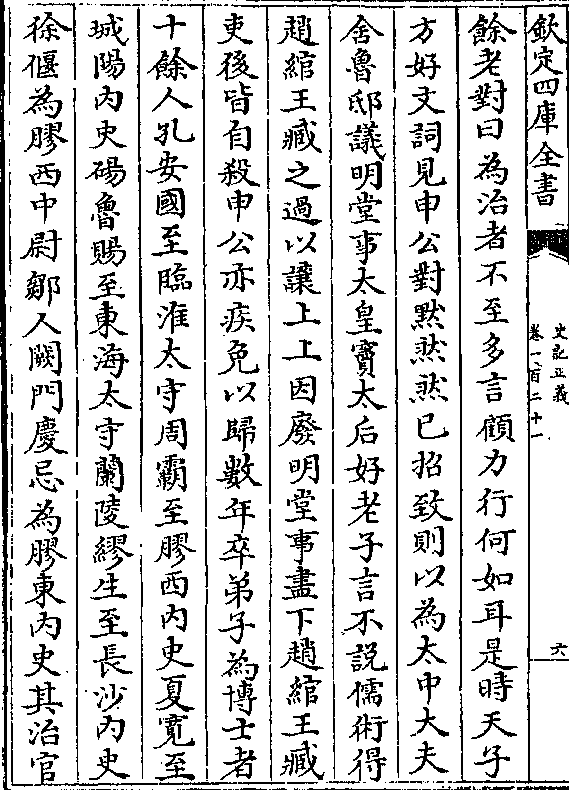 欽定四庫全書
史記正義
卷一百二十一
六
餘老對曰為治者不至多言顧力行何如耳是時天子
方好文詞見申公對默然然已招致則以為太中大夫
舍魯邸議明堂事太皇竇太后好老子言不説儒術得
趙綰王臧之過以讓上上因廢明堂事盡下趙綰王臧
吏後皆自殺申公亦疾免以歸數年卒弟子為博士者
十餘人孔安國至臨淮太守周霸至膠西内史夏寛至
城陽内史碭魯賜至東海太守蘭陵繆生至長沙内史
徐偃為膠西中尉鄒人闕門慶忌為膠東内史其治官